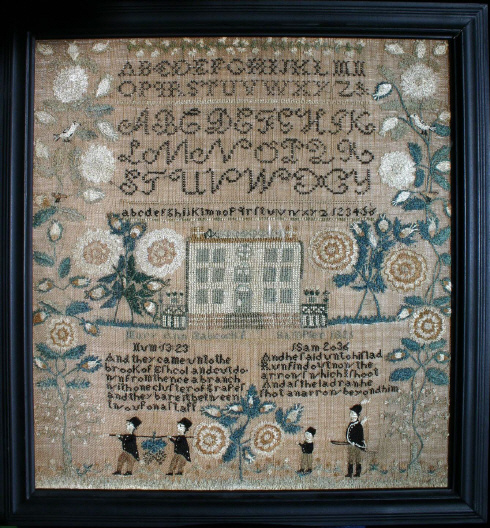 ABCDEFGHIJKLM
OPQRSTUVWXYZ&
ABCDEFGHIK
LMNOPQR
STUVWXY
abcdefghijklmnopqrstuvwxyz123456
Num 13 23
And they came unto the
brook of Eshcol and cutdo
wn from thence a branch
with one cluster of Grapes
and they bare it between
two upon a staff
1Sam 2036
And he said unto his lad
Run find out now the
arrows which I shoot
And as the lad ran he
shot an arrow beyond him